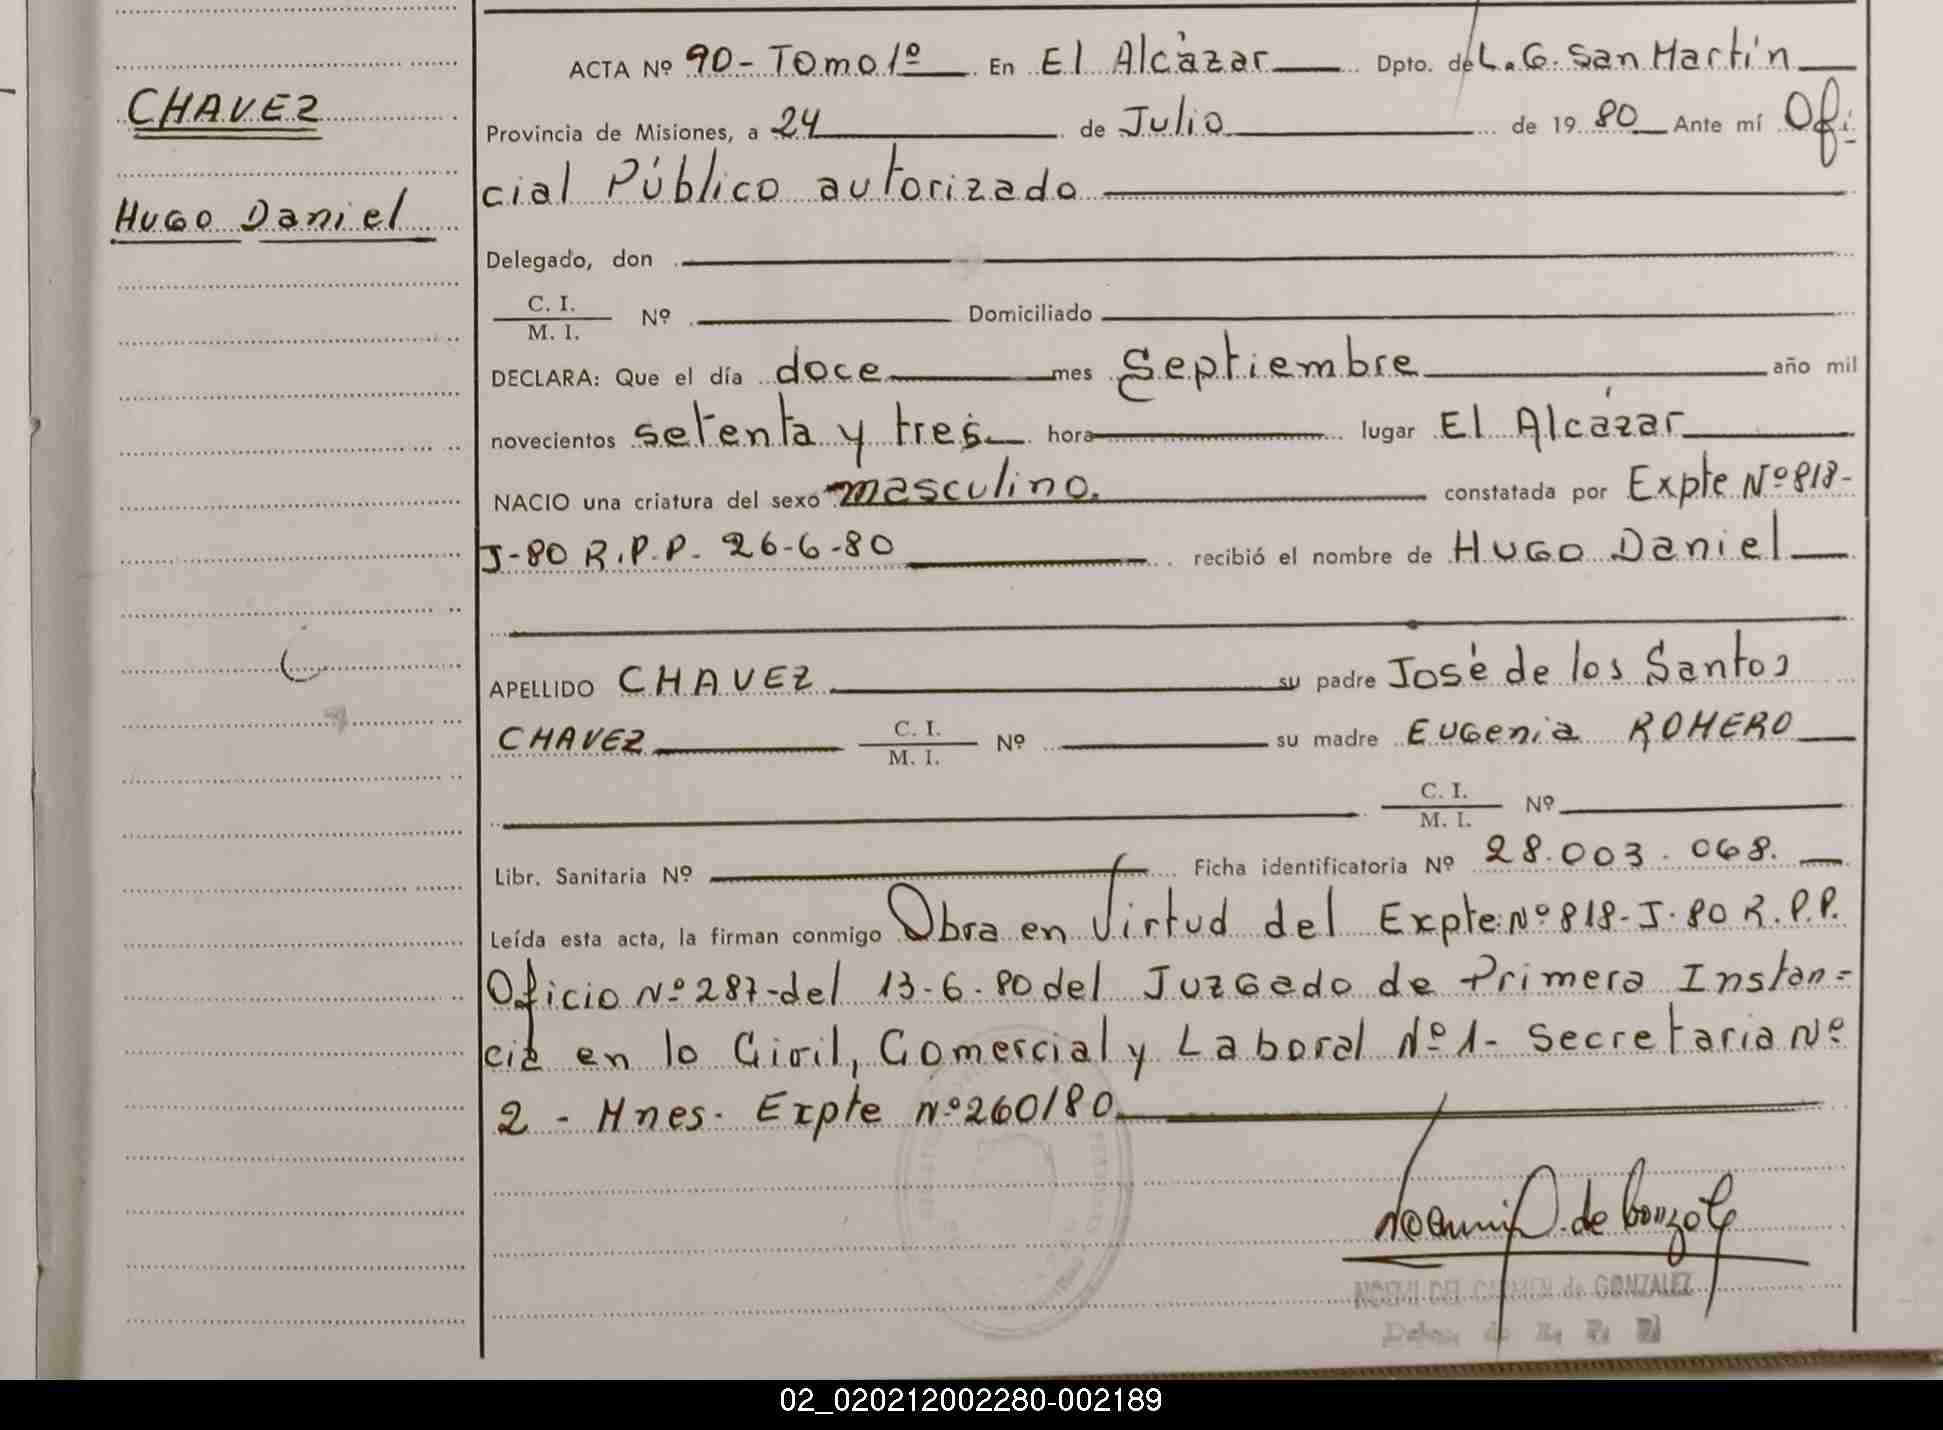 CHAVEZ
HUGO Daniel
ACTA Nº 90 - Tomo 1º En El Alcázar Dpto. de L. G. San Martín
Provincia de Misiones, a 24 de Julio de 19 80 Ante mí Ofi-
cial Público autorizado
Delegado, don
C. I.
M. I. Nº Domiciliado
DECLARA: Que el día doce mes Septiembre año mil
novecientos setenta y tres hora lugar El Alcázar
NACIO una criatura del sexo masculino. constatada por Expte Nº 818-
J-80 R.P.P. 26-6-80 recibió el nombre de HUGO Daniel
APELLIDO CHAVEZ su padre José de los Santos
CHAVEZ C. I. M. I. Nº su madre Eugenia ROMERO
C. I. M. I. Nº
Libr. Sanitaria Nº Ficha identificatoria Nº 28.003.068.
Leída esta acta, la firman conmigo Obra en Virtud del Expte: Nº 818-J-80 R.P.P.
Oficio Nº 287-del 13-6-80 del Juzgado de Primera Instan=
cia en lo Civil, Comercial y Laboral Nº 1- Secretaria Nº
2 - Mnes. Expte Nº 260/80
Noemi D. de Gonzalez
NOEMI DEL CARMEN de GONZALEZ
02_020212002280-002189